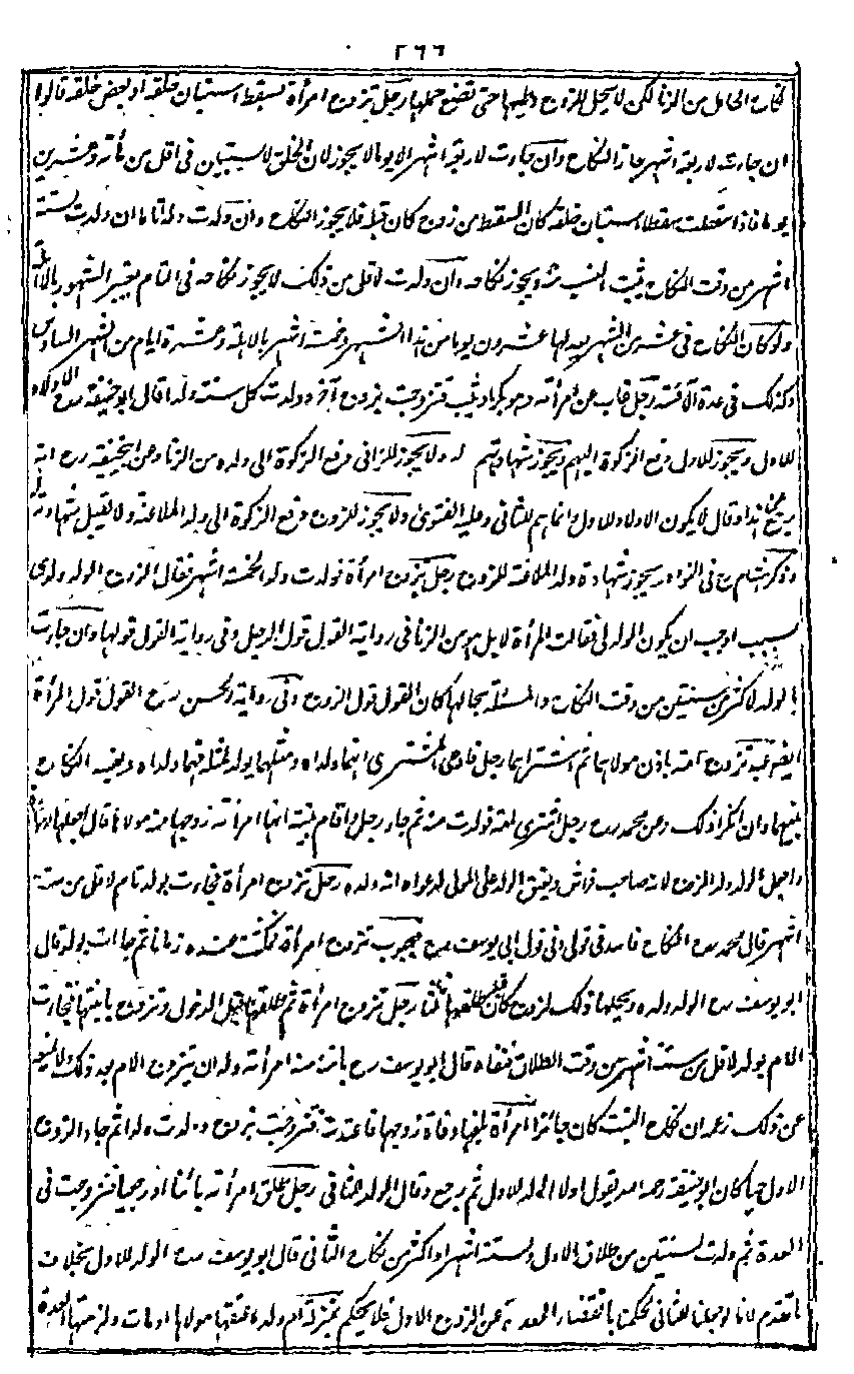 ٢٦٦
نكاح الحامل من الزنا لكن لا يحل للزوج وطيها حتى تضع حملها رجل تزوج امرأة فسقط استبان خلقه او بعض خلقه قالوا
ان جاءت لاربعة اشهر جاز النكاح وان جاءت لاربعة اشهر الا يوما لا يجوز لان الخلق لا يستبين في اقل من مائة وعشرين
يوما فاذا اسقطت سقطا استبان خلقه كان السقط من زوج كان قبله فلا يجوز النكاح وان ولدت ولدا تاما ان ولدت لستة
اشهر من وقت النكاح يثبت النسب منه ويجوز نكاحه وان ولدت لاقل من ذلك لا يجوز نكاحه في التام يعتبر الشهور بالاهلة
ولو كان النكاح في عشر من الشهر يعد لها عشرون يوما من هذا الشهر وخمسة اشهر بالاهلة وعشرة ايام من الشهر السادس
وكذلك في عدة الآئسة رجل غاب عن امرأته وهو بكر او ثيب فتزوجت بزوج آخر وولدت كل سنة ولدا قال ابو حنيفة رح الاولاد
للاول ويجوز للاول دفع الزكوة اليهم ويجوز شهادتهم له ولا يجوز للزاني دفع الزكوة الى ولده من الزنا وعن ابي حنيفة رح انه
رجع عن هذا وقال لا يكون الاولاد للاول انما هم للثاني وعليه الفتوى ولا يجوز للزوج دفع الزكوة الى ولد الملاعنة ولا تقبل شهادته له
وذكر هشام رح في النوادر يجوز شهادة ولد الملاعنة للزوج رجل تزوج امرأة فولدت ولدا لخمسة اشهر فقال الزوج الولد ولدي
بسبب اوجب ان يكون الولد لي فقالت المرأة لا بل هو من الزنا في رواية القول قول الرجل وفي رواية القول قولها وان جاءت
بالولد لاكثر من سنتين من وقت النكاح والمسئلة بحالها كان القول قول الزوج وفي رواية الحسن رح القول قول المرأة
ايضا عبد تزوج امة باذن مولاهما ثم اشتراهما رجل فادعى المشتري انهما ولداه ومثلهما يولد لمثله فهما ولداه ويفسد النكاح
بينهما وان انكرا ذلك وعن محمد رح رجل اشترى امة فولدت منه ثم جاء رجل واقام بينة انها امرأته زوجها منه مولاها قال اجعلها امرأته
واجعل الولد ولد الزوج لانه صاحب فراش ويعتق الولد على المولى لدعواه انه ولده رجل تزوج امرأة فجاءت بولد تام لاقل من ستة
اشهر قال محمد رح النكاح فاسد في قولي وفي قول ابي يوسف رح مجبوب تزوج امرأة فمكثت عنده زمانا ثم جاءت بولد قال
ابو يوسف رح الولد ولده ويحلها ذلك لزوج كان قبله طلقها ثلثا رجل تزوج امرأة ثم طلقها قبل الدخول وتزوج بابنتها فجاءت
الام بولد لاقل من ستة اشهر من وقت الطلاق فنفاه قال ابو يوسف رح بانت منه امرأته وله ان يتزوج الام بعد ذلك ولا يمنعه
عن ذلك زعمه ان نكاح البنت كان جائزا امرأة بلغها وفاة زوجها فاعتدت فتزوجت بزوج وولدت ولدا ثم جاء الزوج
الاول حيا كان ابو حنيفة رحمه الله يقول اولا الولد للاول ثم رجع وقال الولد للثاني رجل طلق امرأته بائنا او رجعيا فتزوجت في
العدة ثم ولدت لسنتين من طلاق الاول ولستة اشهر او اكثر من نكاح الثاني قال ابو يوسف رح الولد للاول بخلاف
ما تقدم لانا لو جعلنا للثاني لحكمنا بانقضاء العدة عن الزوج الاول فلا يحكم بمنزلة ام ولد اعتقها مولاها او مات ولزمتها العدة